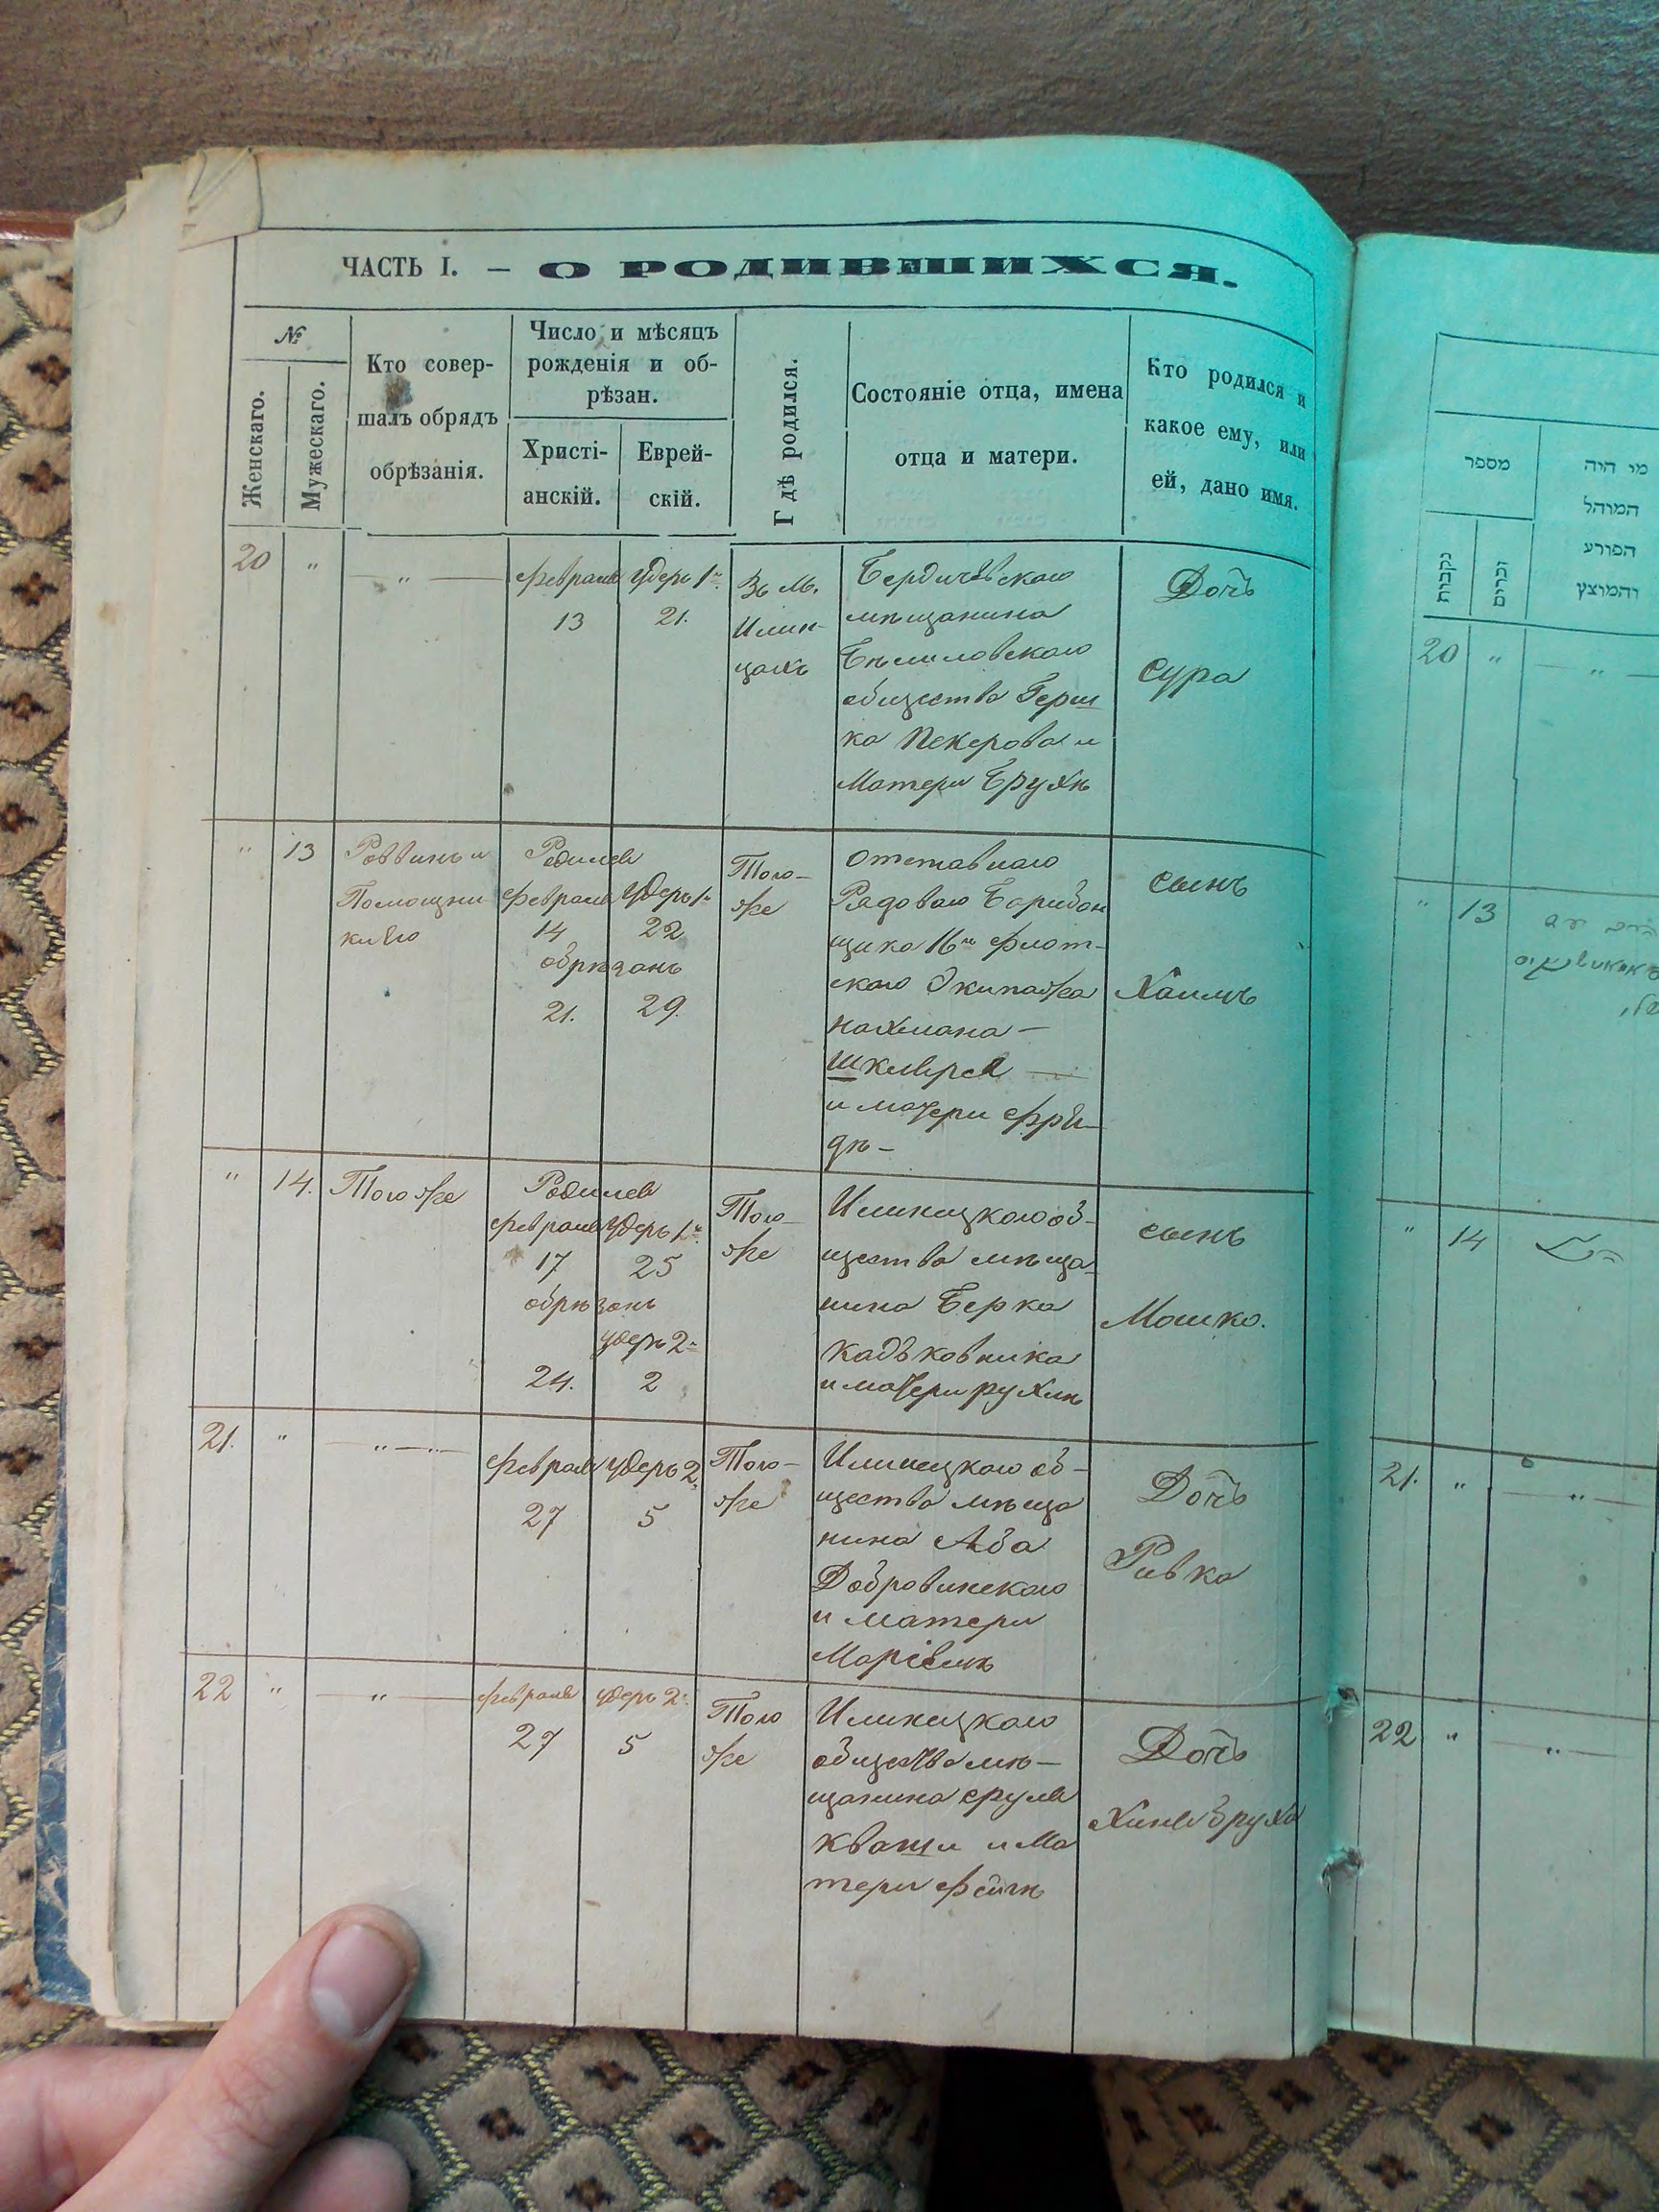 ЧАСТЬ I. — О РОДИВШИХСЯ.
№
Женскаго.
Мужескаго.
Кто совер-
шалъ обрядъ
обрѣзанія.
Число и мѣсяцъ
рожденія и об-
рѣзан.
Христі-
анскій.
Еврей-
скій.
Гдѣ родился.
Состояніе отца, имена
отца и матери.
Кто родился и
какое ему, или
ей, дано имя.
20 " — " —
Февраля
13
Удеръ 1й
21.
Въ м.
Илин-
цахъ
Бердичевскаго
мѣщанина
Бѣлиловскаго
общества Герш
ка Пекерова и
Матери Брухѣ
Дочь
Сура
" 13
Раввинъ и
Помощни
ки Его
Родился
Февраля
14
Удеръ 1й
22
обрѣзанъ
21.
29.
Того-
же
Отставнаго
Рядоваго Барабан
щика 16го Флот-
скаго Экипажа
Нахмана —
Шкляра —
и матери Фрѣй-
дѣ -
сынъ
Хаимъ
" 14.
Того же
Родился
Февраля
17
Удеръ 1й
25
обрѣзанъ
Удеръ 2й
24.
2
Того-
же
Илинецкаго об-
щества мѣща-
нина Берка
Кадьковника
и матери Рухли
сынъ
Мошко.
21. " " — "
Февраля
27
Удеръ 2
5
Того-
же
Илинецкаго об-
щества мѣща
нина Аба
Добровинскаго
и матери
Дочь
Ривка
22 " — " —
Февраля
27
Удеръ 2й
5
Того
же
Илинецкаго
общества мѣ-
щанина Сруля
Кваши и Ма
тери Фейгѣ
Дочь
Хиня Бруха
מספר
נקבות
זכרים
מי היה
המוהל
הפורע
והמוצץ
20 " — " —
" 13
" 14
21. " — " —
22 " — " —